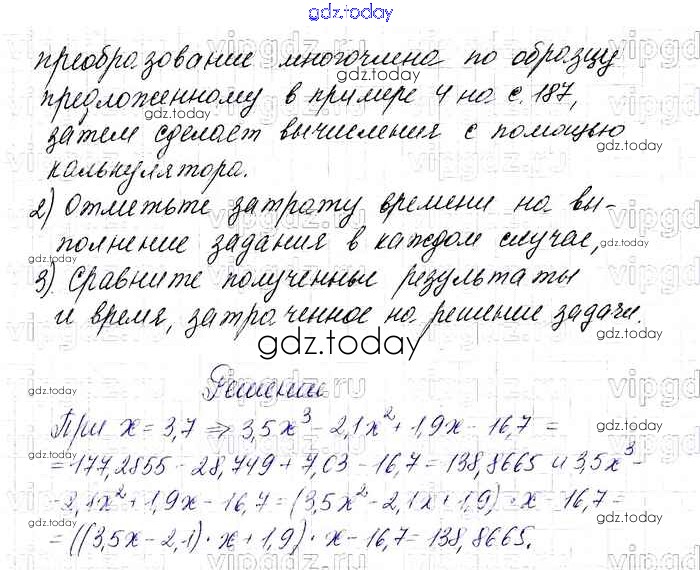 gdz.today
преобразование многочлена по образцу
предложенному в примере 4 на с. 187,
затем сделает вычисления с помощью
калькулятора.
2) Отметьте затрату времени на вы-
полнение задания в каждом случае,
3) Сравните полученные результаты
и время, затраченное на решение задачи.
gdz.today
Решение.
При x = 3,7 ⇒ 3,5x³ - 2,1x² + 1,9x - 16,7 =
= 177,2855 - 28,749 + 7,03 - 16,7 = 138,8665 и 3,5x³ -
- 2,1x² + 1,9x - 16,7 = (3,5x² - 2,1x + 1,9) · x - 16,7 =
= ((3,5x - 2,1) · x + 1,9) · x - 16,7 = 138,8665.